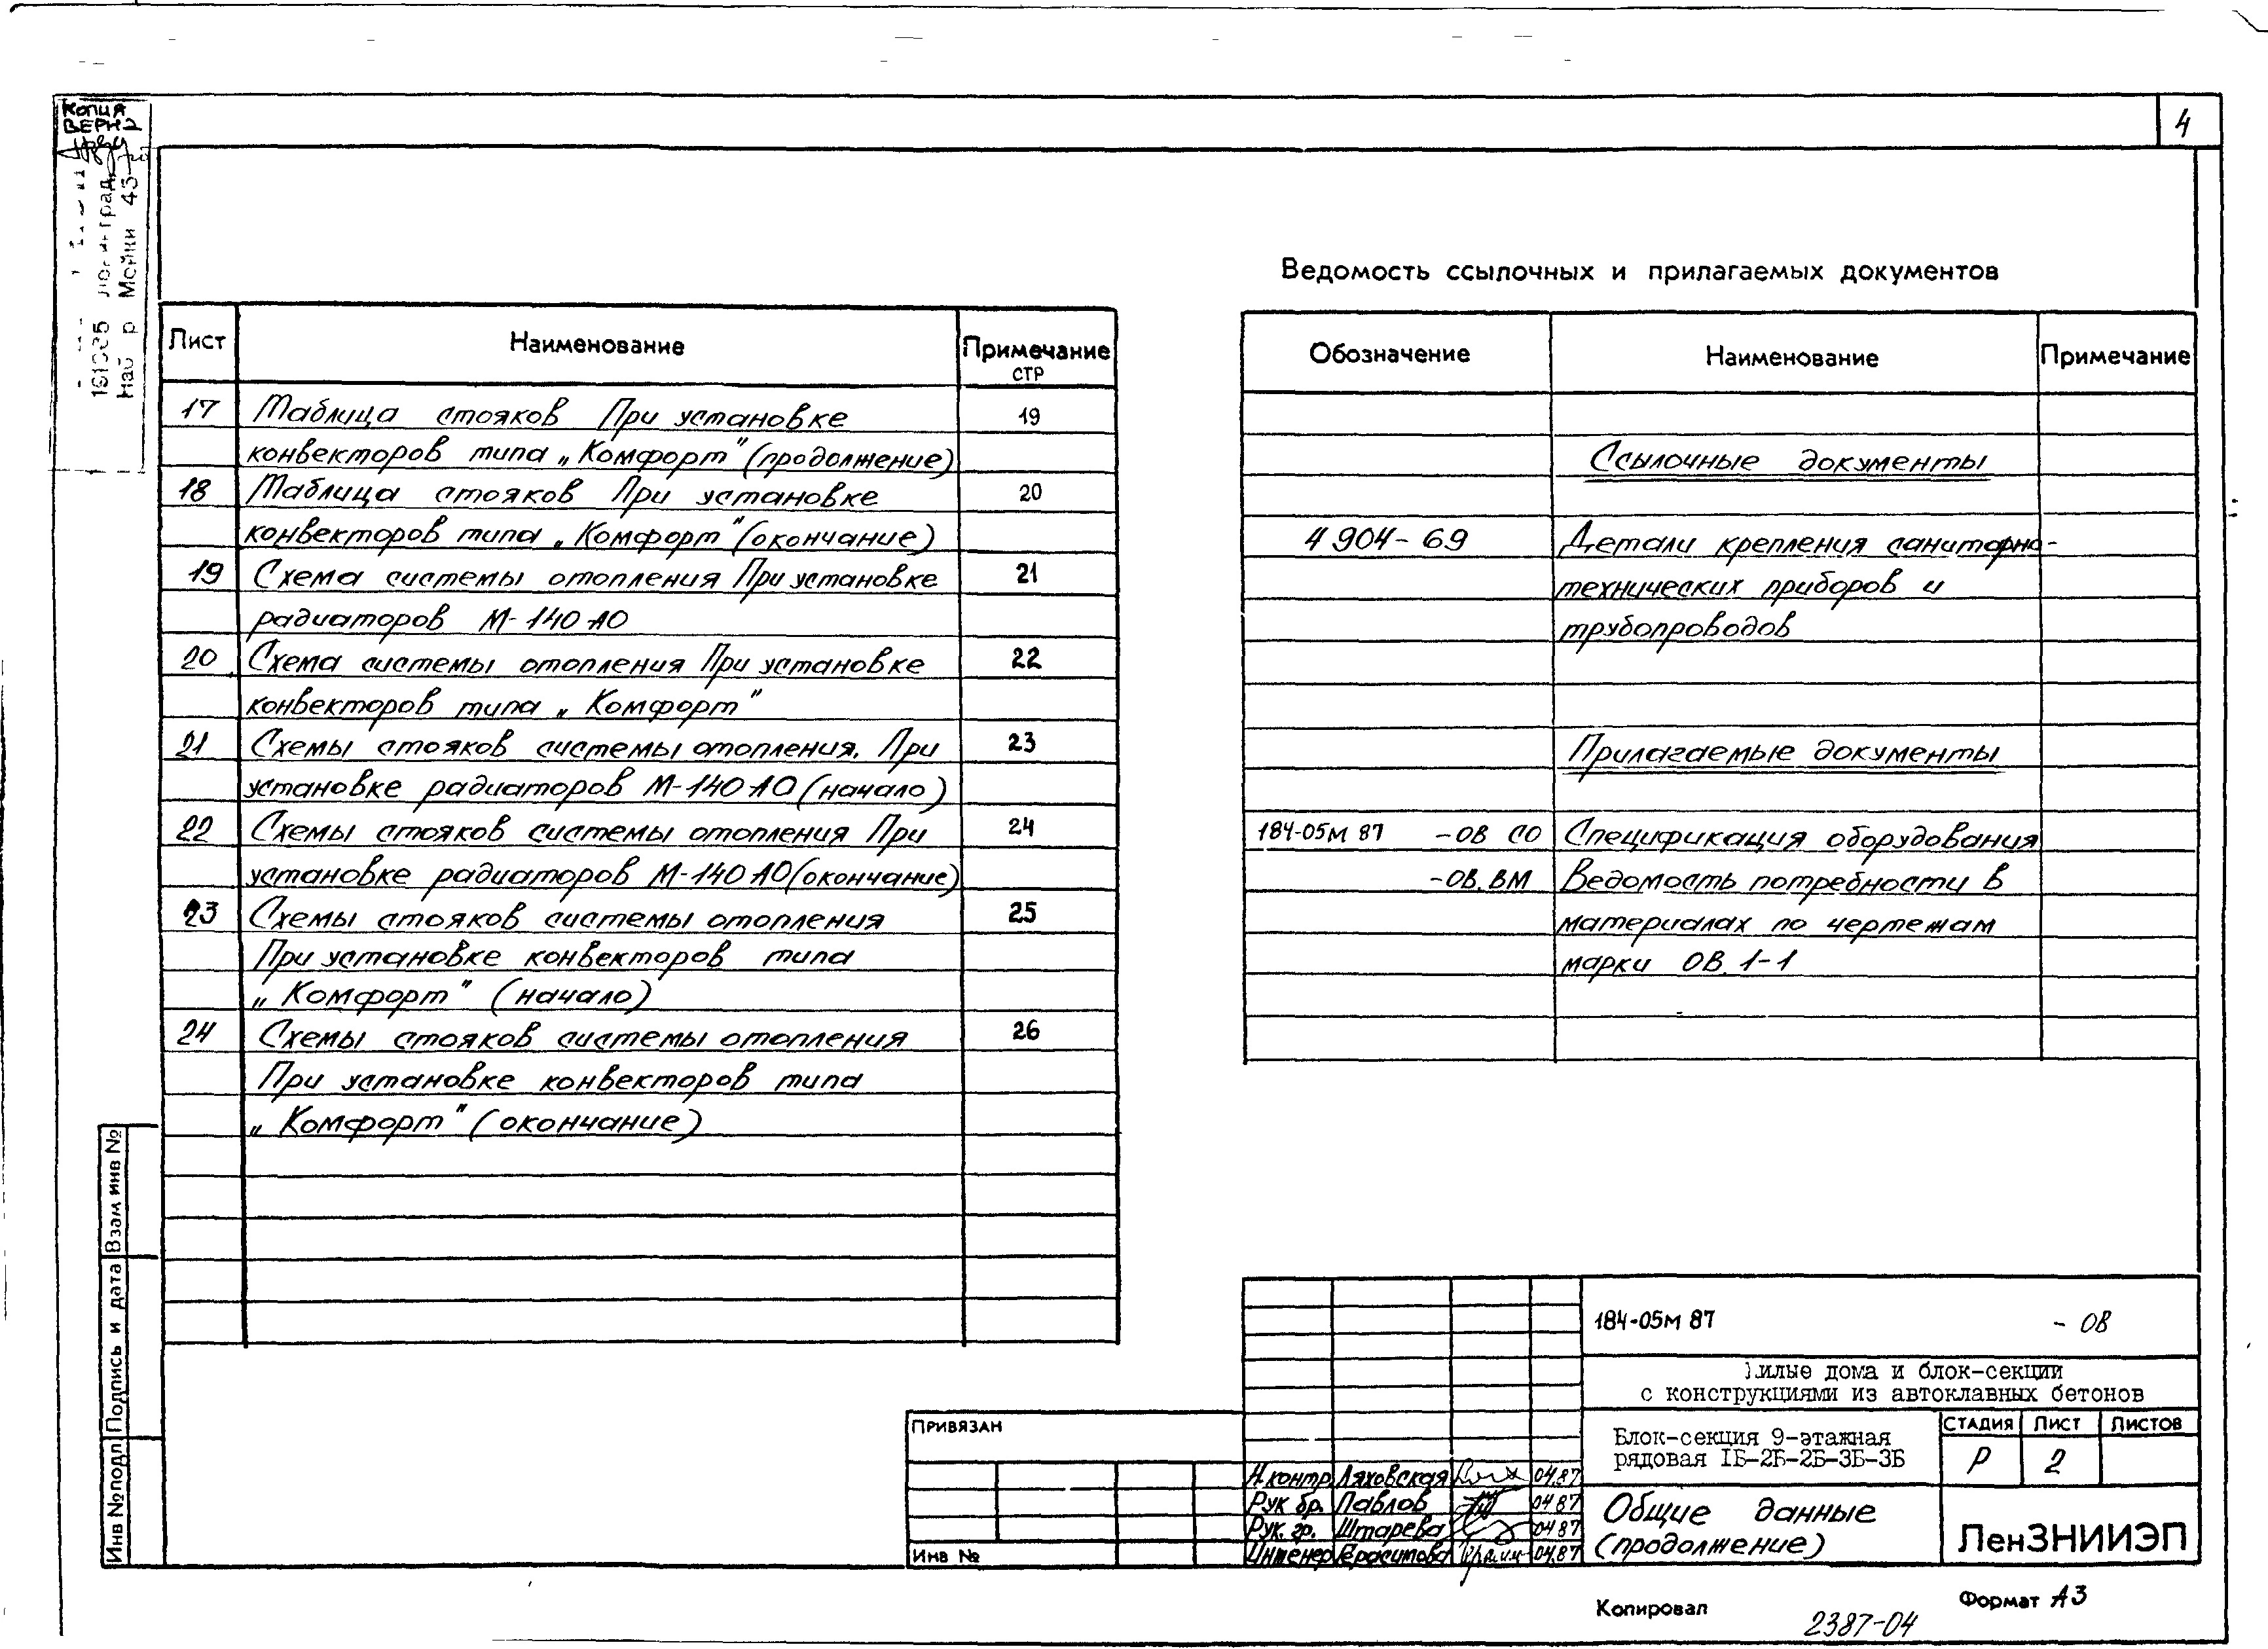 4
КОПИЯ
ВЕРНА
Наб р Мойки 43
Ведомость ссылочных и прилагаемых документов
Лист Наименование Примечание
стр
17 Таблица стояков При установке 19
конвекторов типа „Комфорт" (продолжение)
18 Таблица стояков При установке 20
конвекторов типа „Комфорт" (окончание)
19 Схема системы отопления При установке 21
радиаторов М-140 АО
20 Схема системы отопления При установке 22
конвекторов типа „Комфорт"
21 Схемы стояков системы отопления. При 23
установке радиаторов М-140 АО (начало)
22 Схемы стояков системы отопления При 24
установке радиаторов М-140 АО (окончание)
23 Схемы стояков системы отопления 25
При установке конвекторов типа
„Комфорт" (начало)
24 Схемы стояков системы отопления 26
При установке конвекторов типа
„Комфорт" (окончание)
Обозначение Наименование Примечание
Ссылочные документы
4 904-69 Детали крепления санитарно-
технических приборов и
трубопроводов
Прилагаемые документы
184-05м 87 -ОВ СО Спецификация оборудования
-ОВ.ВМ Ведомость потребности в
материалах по чертежам
марки ОВ.1-1
Взам инв №
Подпись и дата
Инв № подл
184-05м 87 - ОВ
илые дома и блок-секции
с конструкциями из автоклавных бетонов
Привязан
Инв №
Н.контр Ляховская 04.87
Рук бр. Павлов 04 87
Рук. гр. Штарева 04 87
Инженер Герасимова 04.87
Блок-секция 9-этажная
рядовая 1Б-2Б-2Б-3Б-3Б
Стадия Лист Листов
Р 2
Общие данные
(продолжение)
ЛенЗНИИЭП
Копировал
Формат А3
2387-04